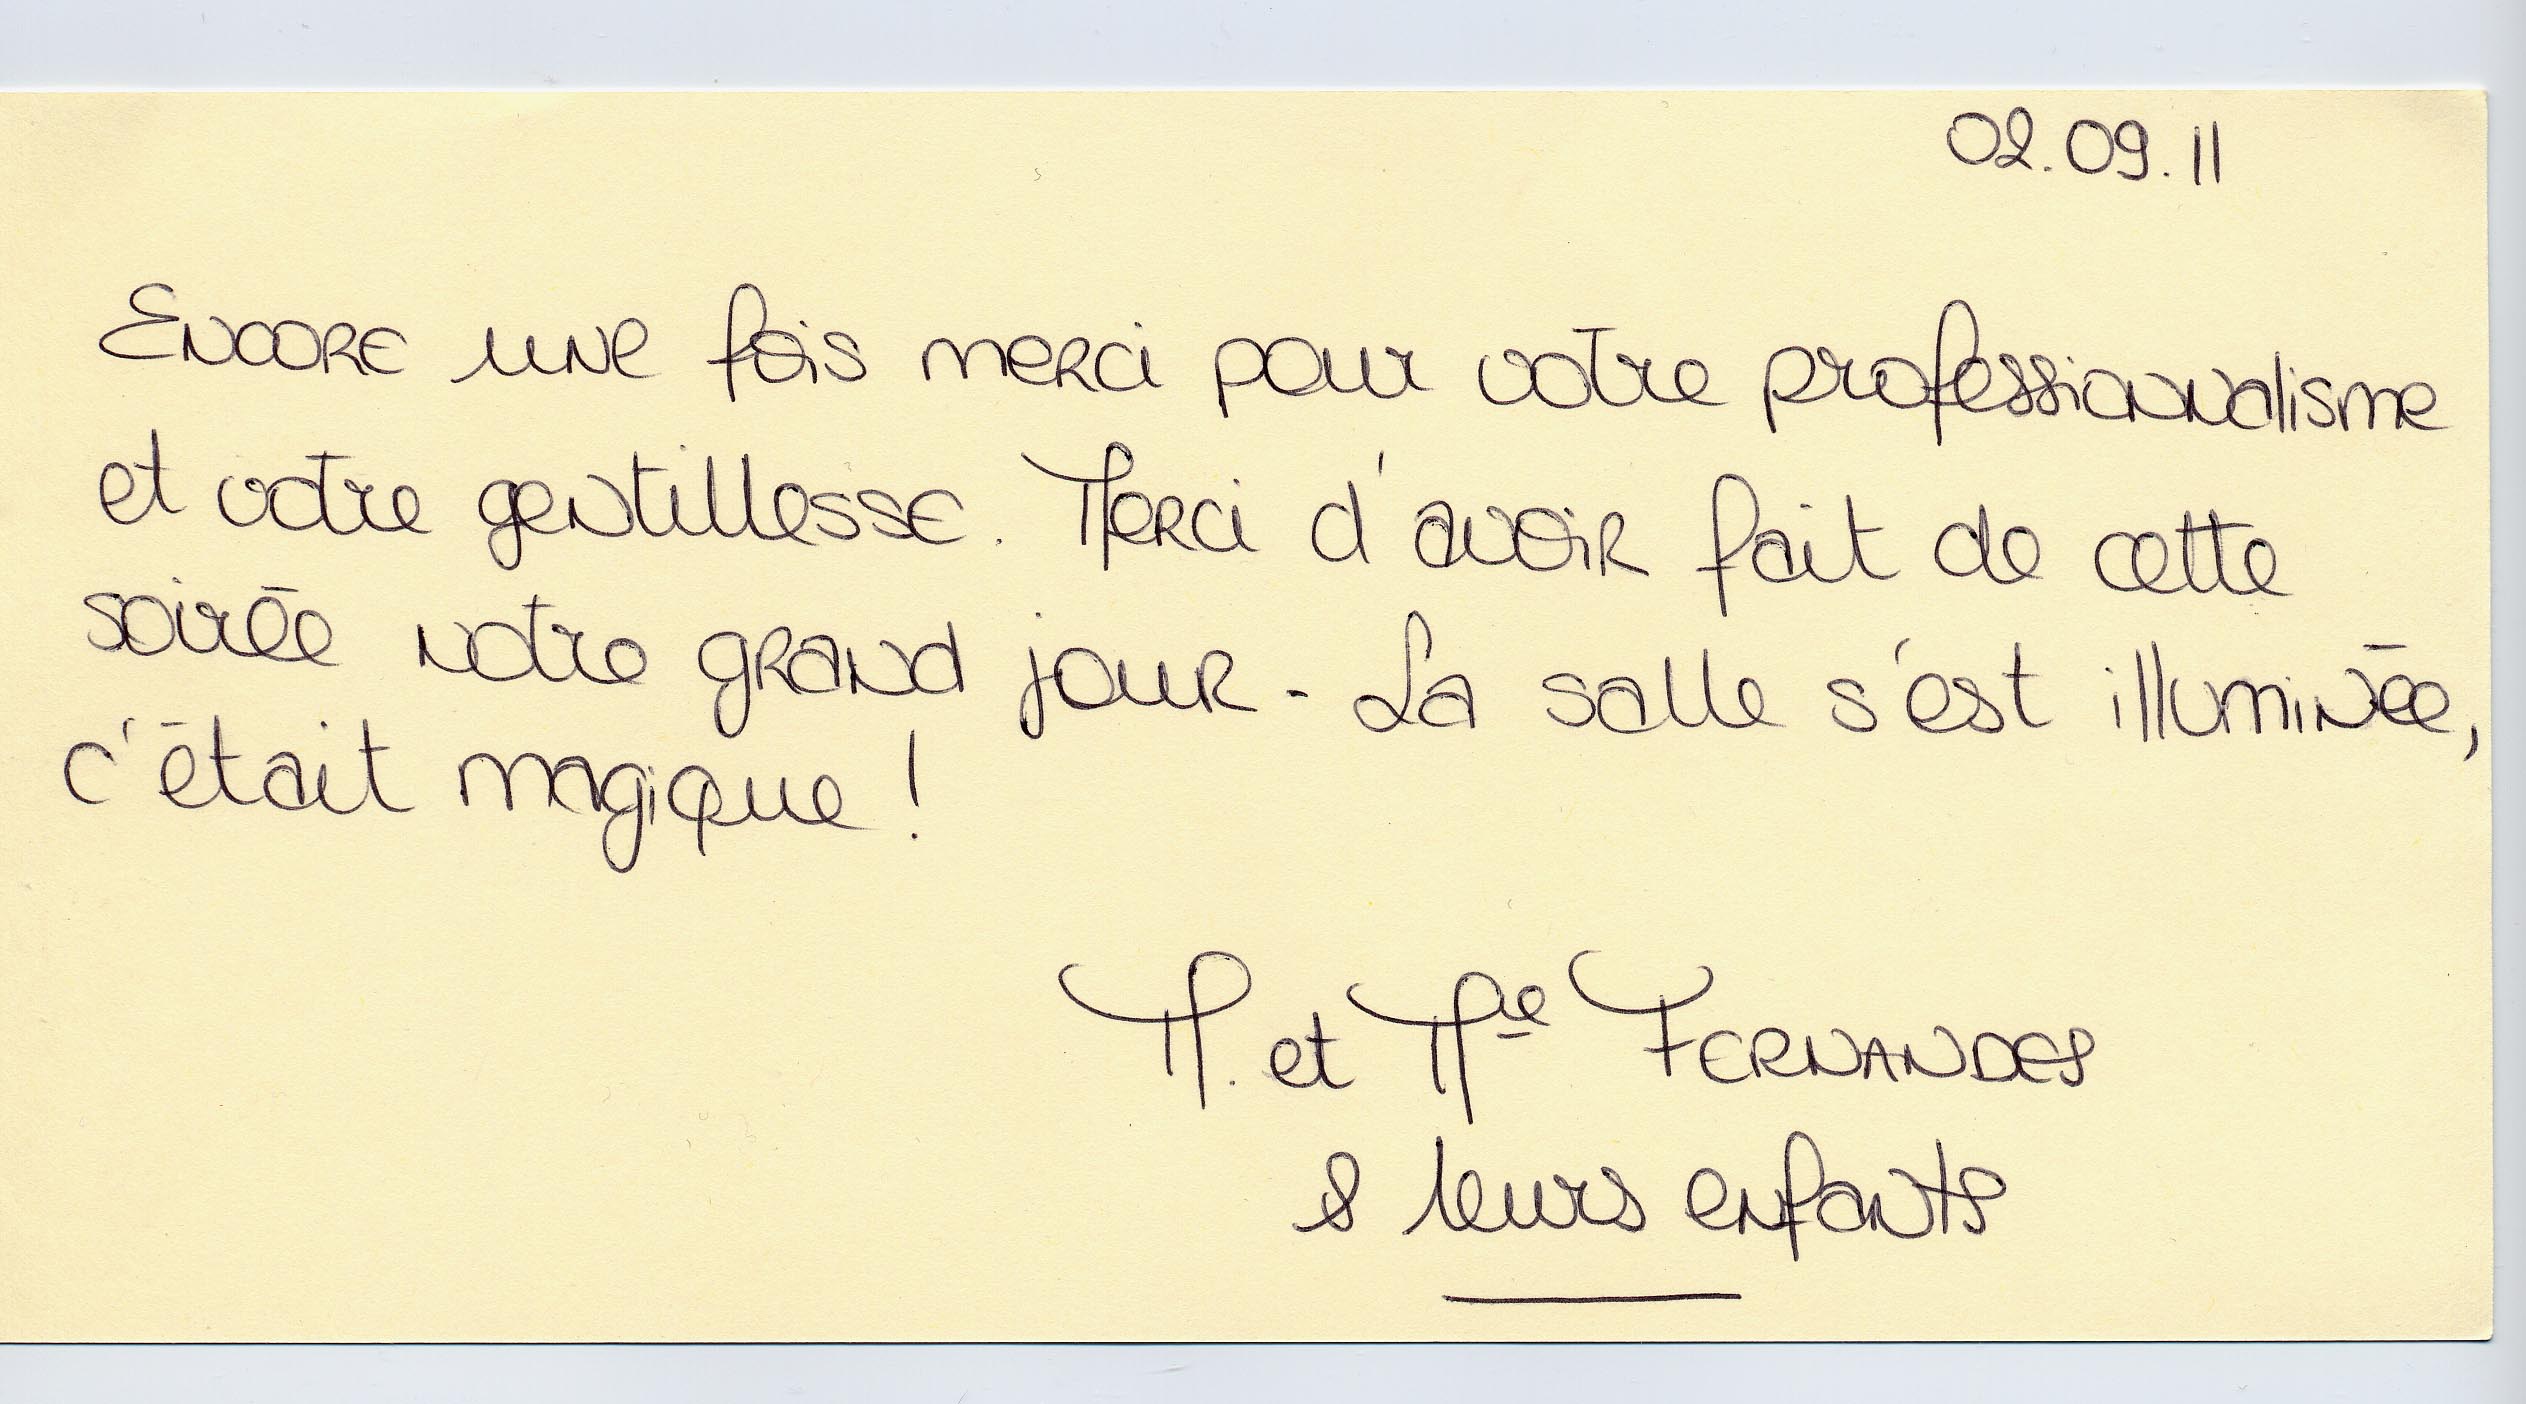 02.09.11
Encore une fois merci pour votre professionnalisme
et votre gentillesse. Merci d'avoir fait de cette
soirée notre grand jour. La salle s'est illuminée,
c'était magique !
M. et Me Fernandes
& leurs enfants